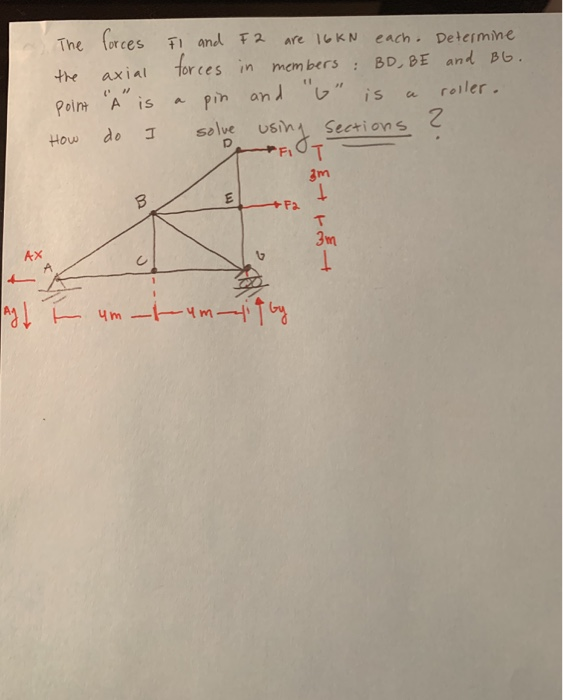 The forces F1 and F2 are 16KN each. Determine
the axial forces in members : BD, BE and BG.
Point "A" is a pin and "G" is a roller.
How do I solve using Sections ?
D
F1
T
3m
B
E
F2
T
3m
Ax
A
C
G
Ay
4m
4m
Gy